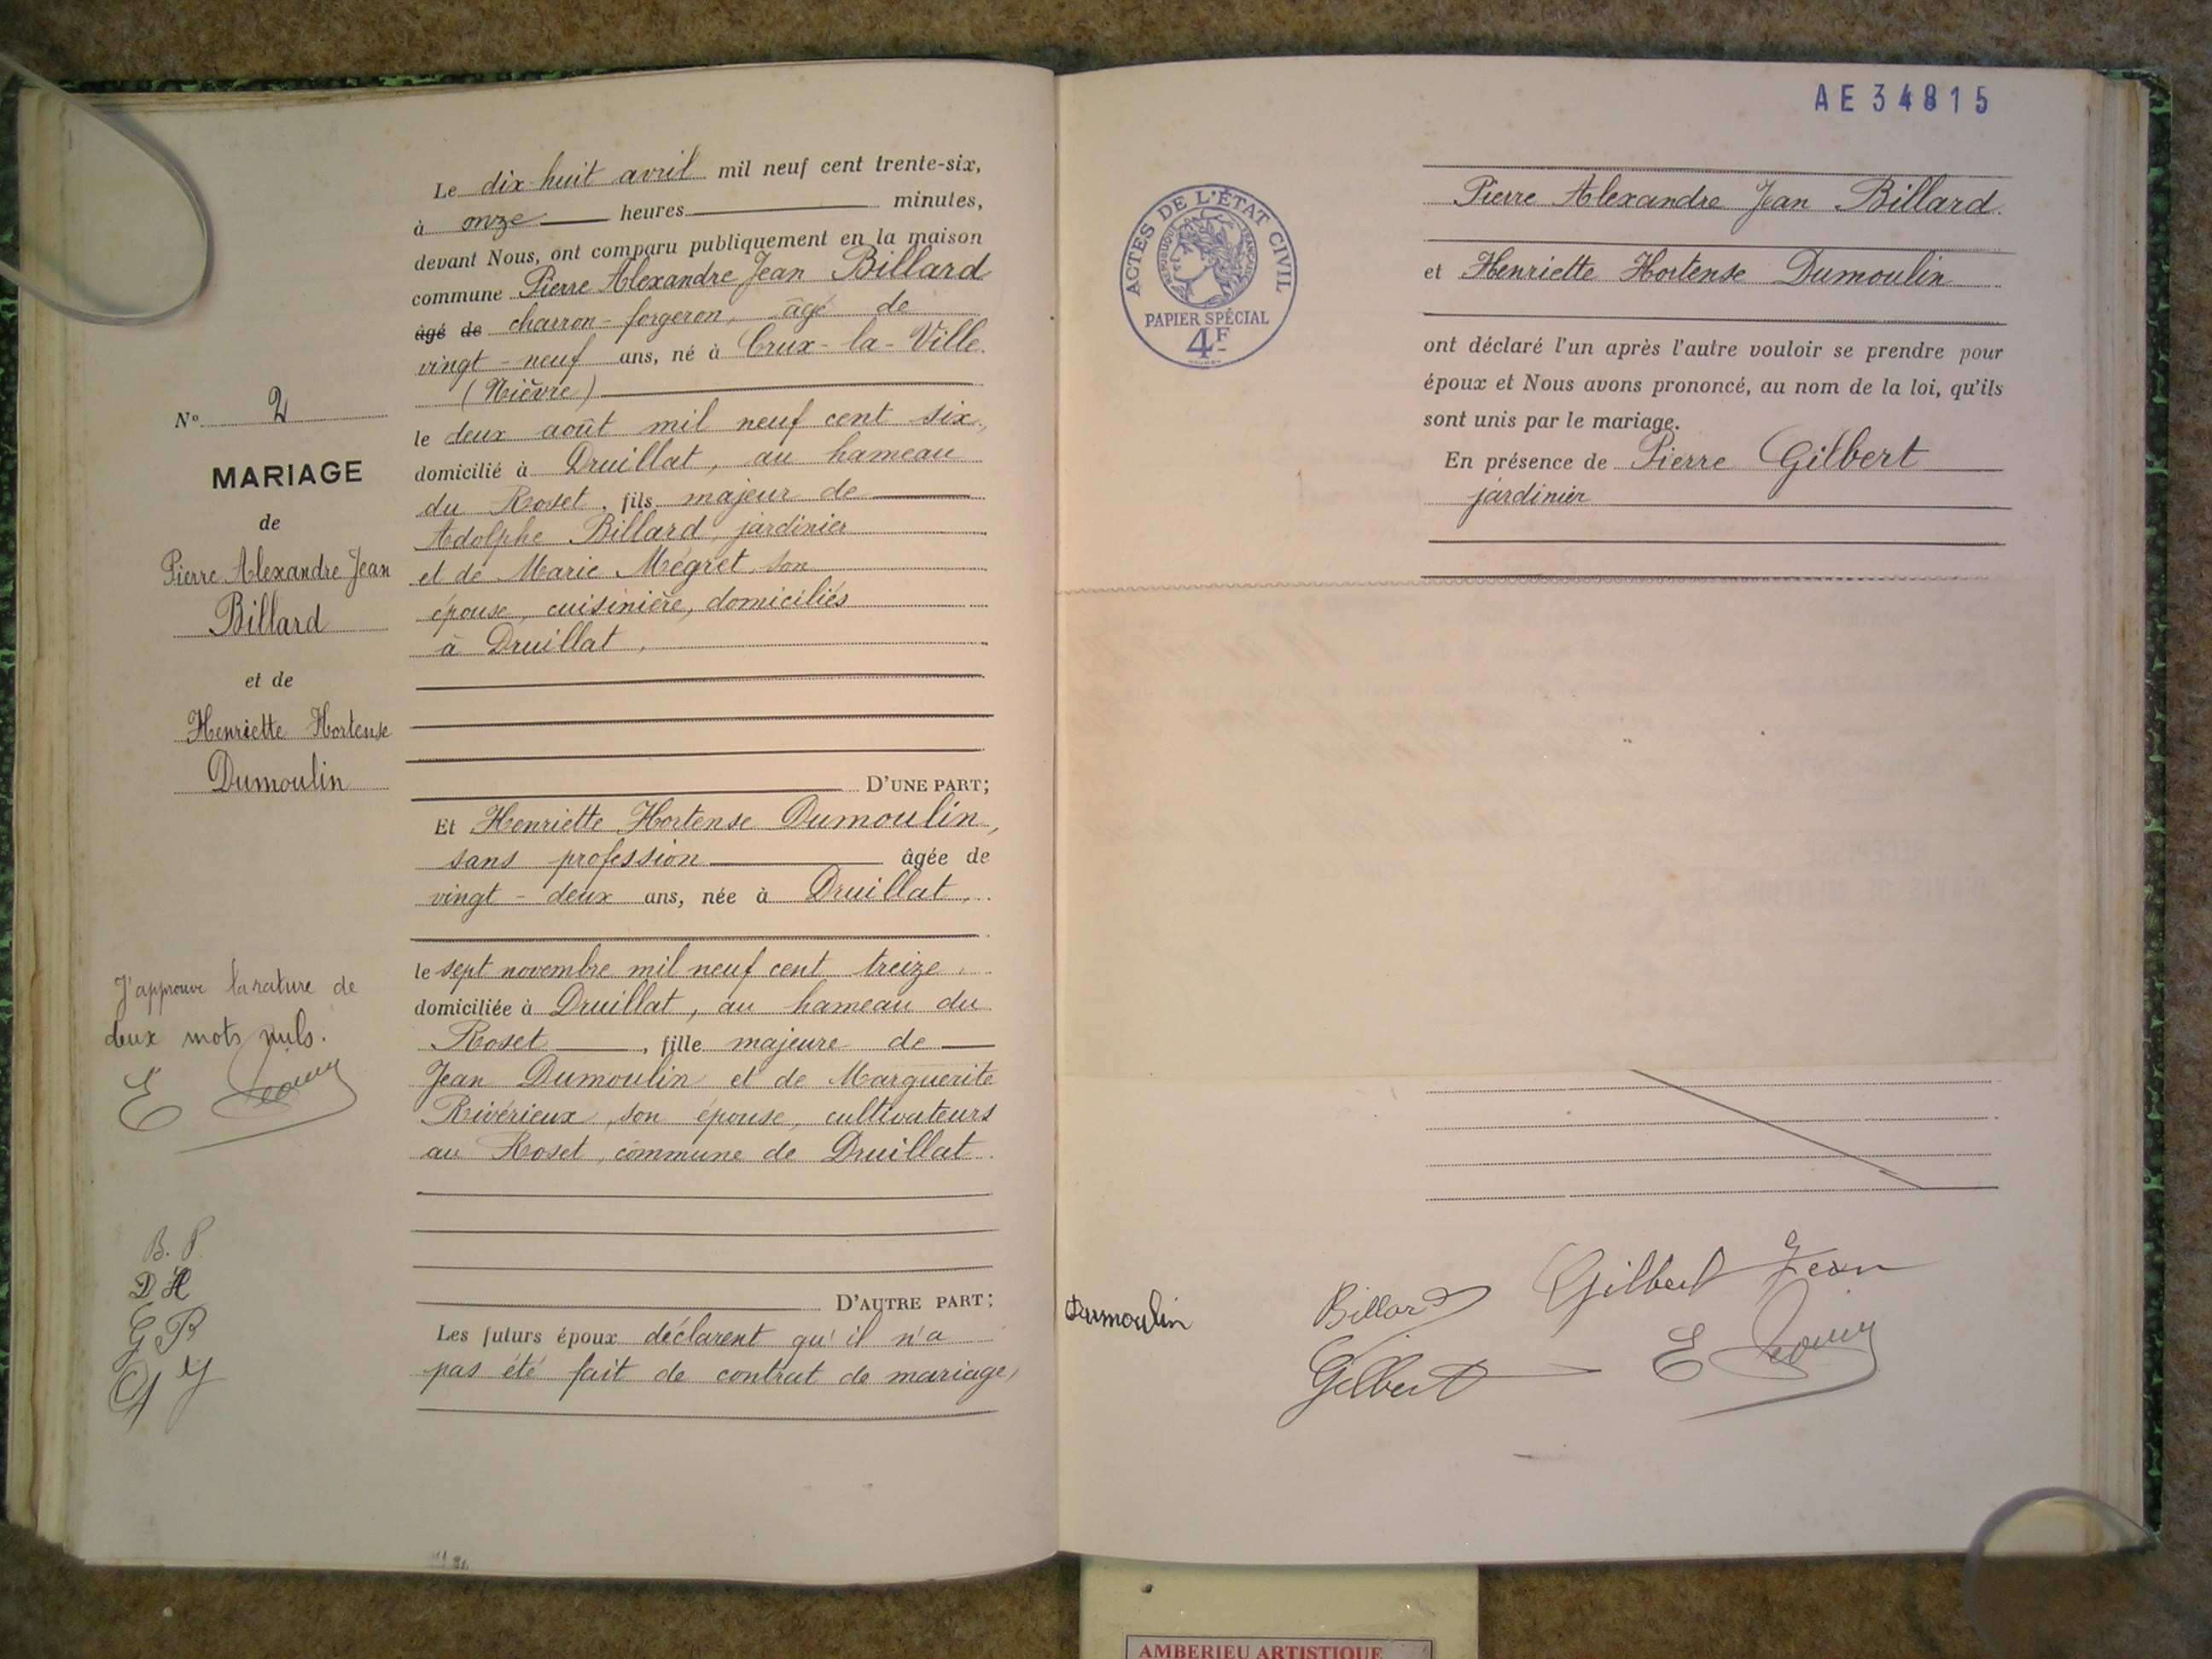 N° 2
MARIAGE
de
Pierre Alexandre Jean
Billard
et de
Henriette Hortense
Dumoulin
J'approuve la rature de
deux mots nuls.
E
B. P
D H
G P
G J
Le dix-huit avril mil neuf cent trente-six,
à onze heures minutes,
devant Nous, ont comparu publiquement en la maison
commune Pierre Alexandre Jean Billard
âgé de charron-forgeron, âgé de
vingt-neuf ans, né à Crux-la-Ville
(Nièvre)
le deux août mil neuf cent six,
domicilié à Druillat, au hameau
du Roset, fils majeur de
Adolphe Billard, jardinier
et de Marie Mégret son
épouse, cuisinière, domiciliés
à Druillat,
D'UNE PART;
Et Henriette Hortense Dumoulin,
sans profession âgée de
vingt-deux ans, née à Druillat,
le sept novembre mil neuf cent treize,
domiciliée à Druillat, au hameau du
Roset, fille majeure de
Jean Dumoulin et de Marguerite
Rivérieux, son épouse, cultivateurs
au Roset, commune de Druillat.
D'AUTRE PART;
Les futurs époux déclarent qu'il n'a
pas été fait de contrat de mariage,
AE34815
ACTES DE L'ÉTAT CIVIL
REPUBLIQUE FRANÇAISE
PAPIER SPÉCIAL
4F
Pierre Alexandre Jean Billard.
et Henriette Hortense Dumoulin
ont déclaré l'un après l'autre vouloir se prendre pour
époux et Nous avons prononcé, au nom de la loi, qu'ils
sont unis par le mariage.
En présence de Pierre Gilbert
jardinier
Dumoulin
Billard
Gilbert Jean
Gilbert
E
AMBERIEU ARTISTIQUE